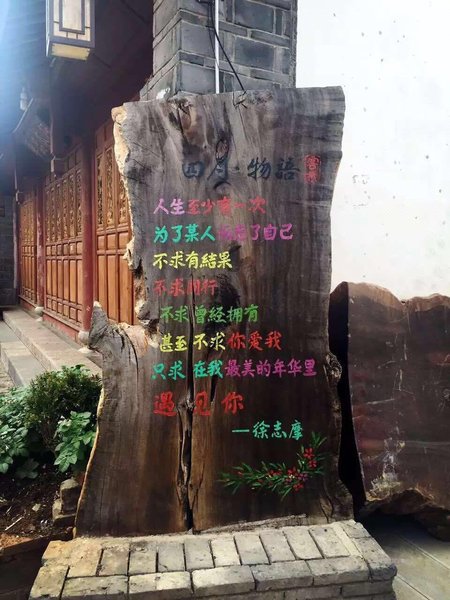 四月·物語
人生至少有一次
为了某人而忘了自己
不求有結果
不求同行
不求曾经拥有
甚至不求你爱我
只求在我最美的年华里
遇见你
—徐志摩